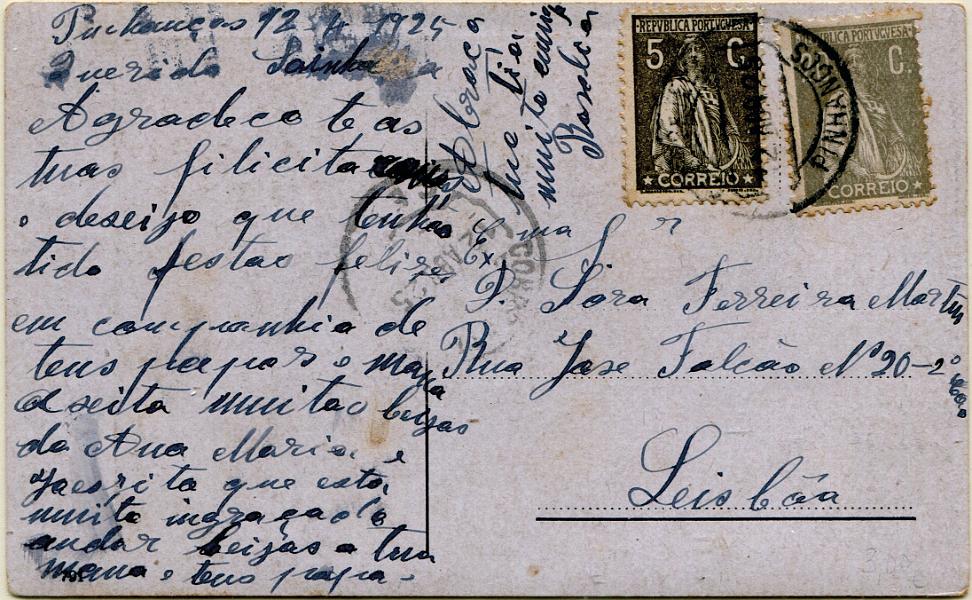 Pinhanços 12 4 1925
Querida Sarinha
Agradeco te as
tuas filicita
o deseijo que tenhas
tido festas felizes
em companhia de
teus papas e mana
aseita muitas beijos
da Ana Maria e
que está
muita ingraçada
andar beijos a tua
mana e teus papa-
Abraça
tua tia
muito amiga
REPVBLICA PORTVGVESA
5 C.
CORREIO
REPVBLICA PORTVGVESA
C.
CORREIO
PINHANÇOS
CORREIO
Ex ma Sr
D. Sora Ferreira Martins
Rua Jose Falcão Nº 20-2º
Leisbôa